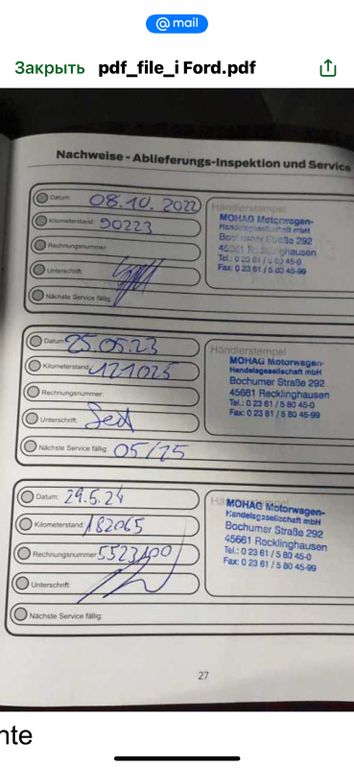 @mail
Закрыть pdf_file_i Ford.pdf
Nachweise - Ablieferungs-Inspektion und Service
Datum: 08.10.2022
Kilometerstand: 90223
Rechnungsnummer:
Unterschrift:
Nächste Service fällig:
Händlerstempel
MOHAG Motorwagen-
Handelsgesellschaft mbH
Bochumer Straße 292
45661 Recklinghausen
Tel.: 0 23 61 / 5 80 45-0
Fax: 0 23 61 / 5 80 45-99
Datum: 25.05.23
Kilometerstand: 121025
Rechnungsnummer:
Unterschrift:
Nächste Service fällig: 05/25
Händlerstempel
MOHAG Motorwagen-
Handelsgesellschaft mbH
Bochumer Straße 292
45661 Recklinghausen
Tel.: 0 23 61 / 5 80 45-0
Fax: 0 23 61 / 5 80 45-99
Datum: 29.5.24
Kilometerstand: 182065
Rechnungsnummer:
Unterschrift:
Nächste Service fällig:
MOHAG Motorwagen-
Handelsgesellschaft mbH
Bochumer Straße 292
45661 Recklinghausen
Tel.: 0 23 61 / 5 80 45-0
Fax: 0 23 61 / 5 80 45-99
27
nte